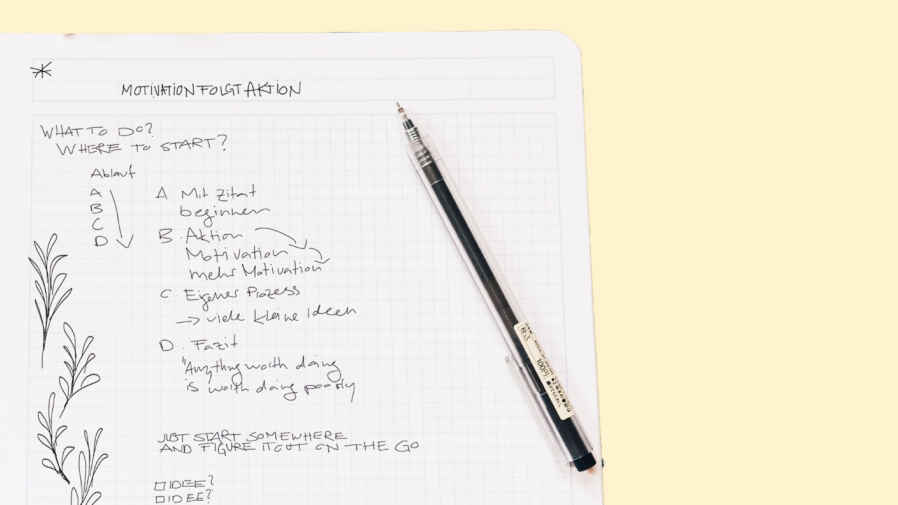 MOTIVATION FOLGT AKTION
WHAT TO DO?
WHERE TO START?
Ablauf
A
B
C
D
A Mit Zitat
beginnen
B. Aktion
Motivation
mehr Motivation
C Eigener Prozess
→ viele kleine ideen
D. Fazit
"Anything worth doing
is worth doing poorly
JUST START SOMEWHERE
AND FIGURE IT OUT ON THE GO
IDEE?
IDEE?